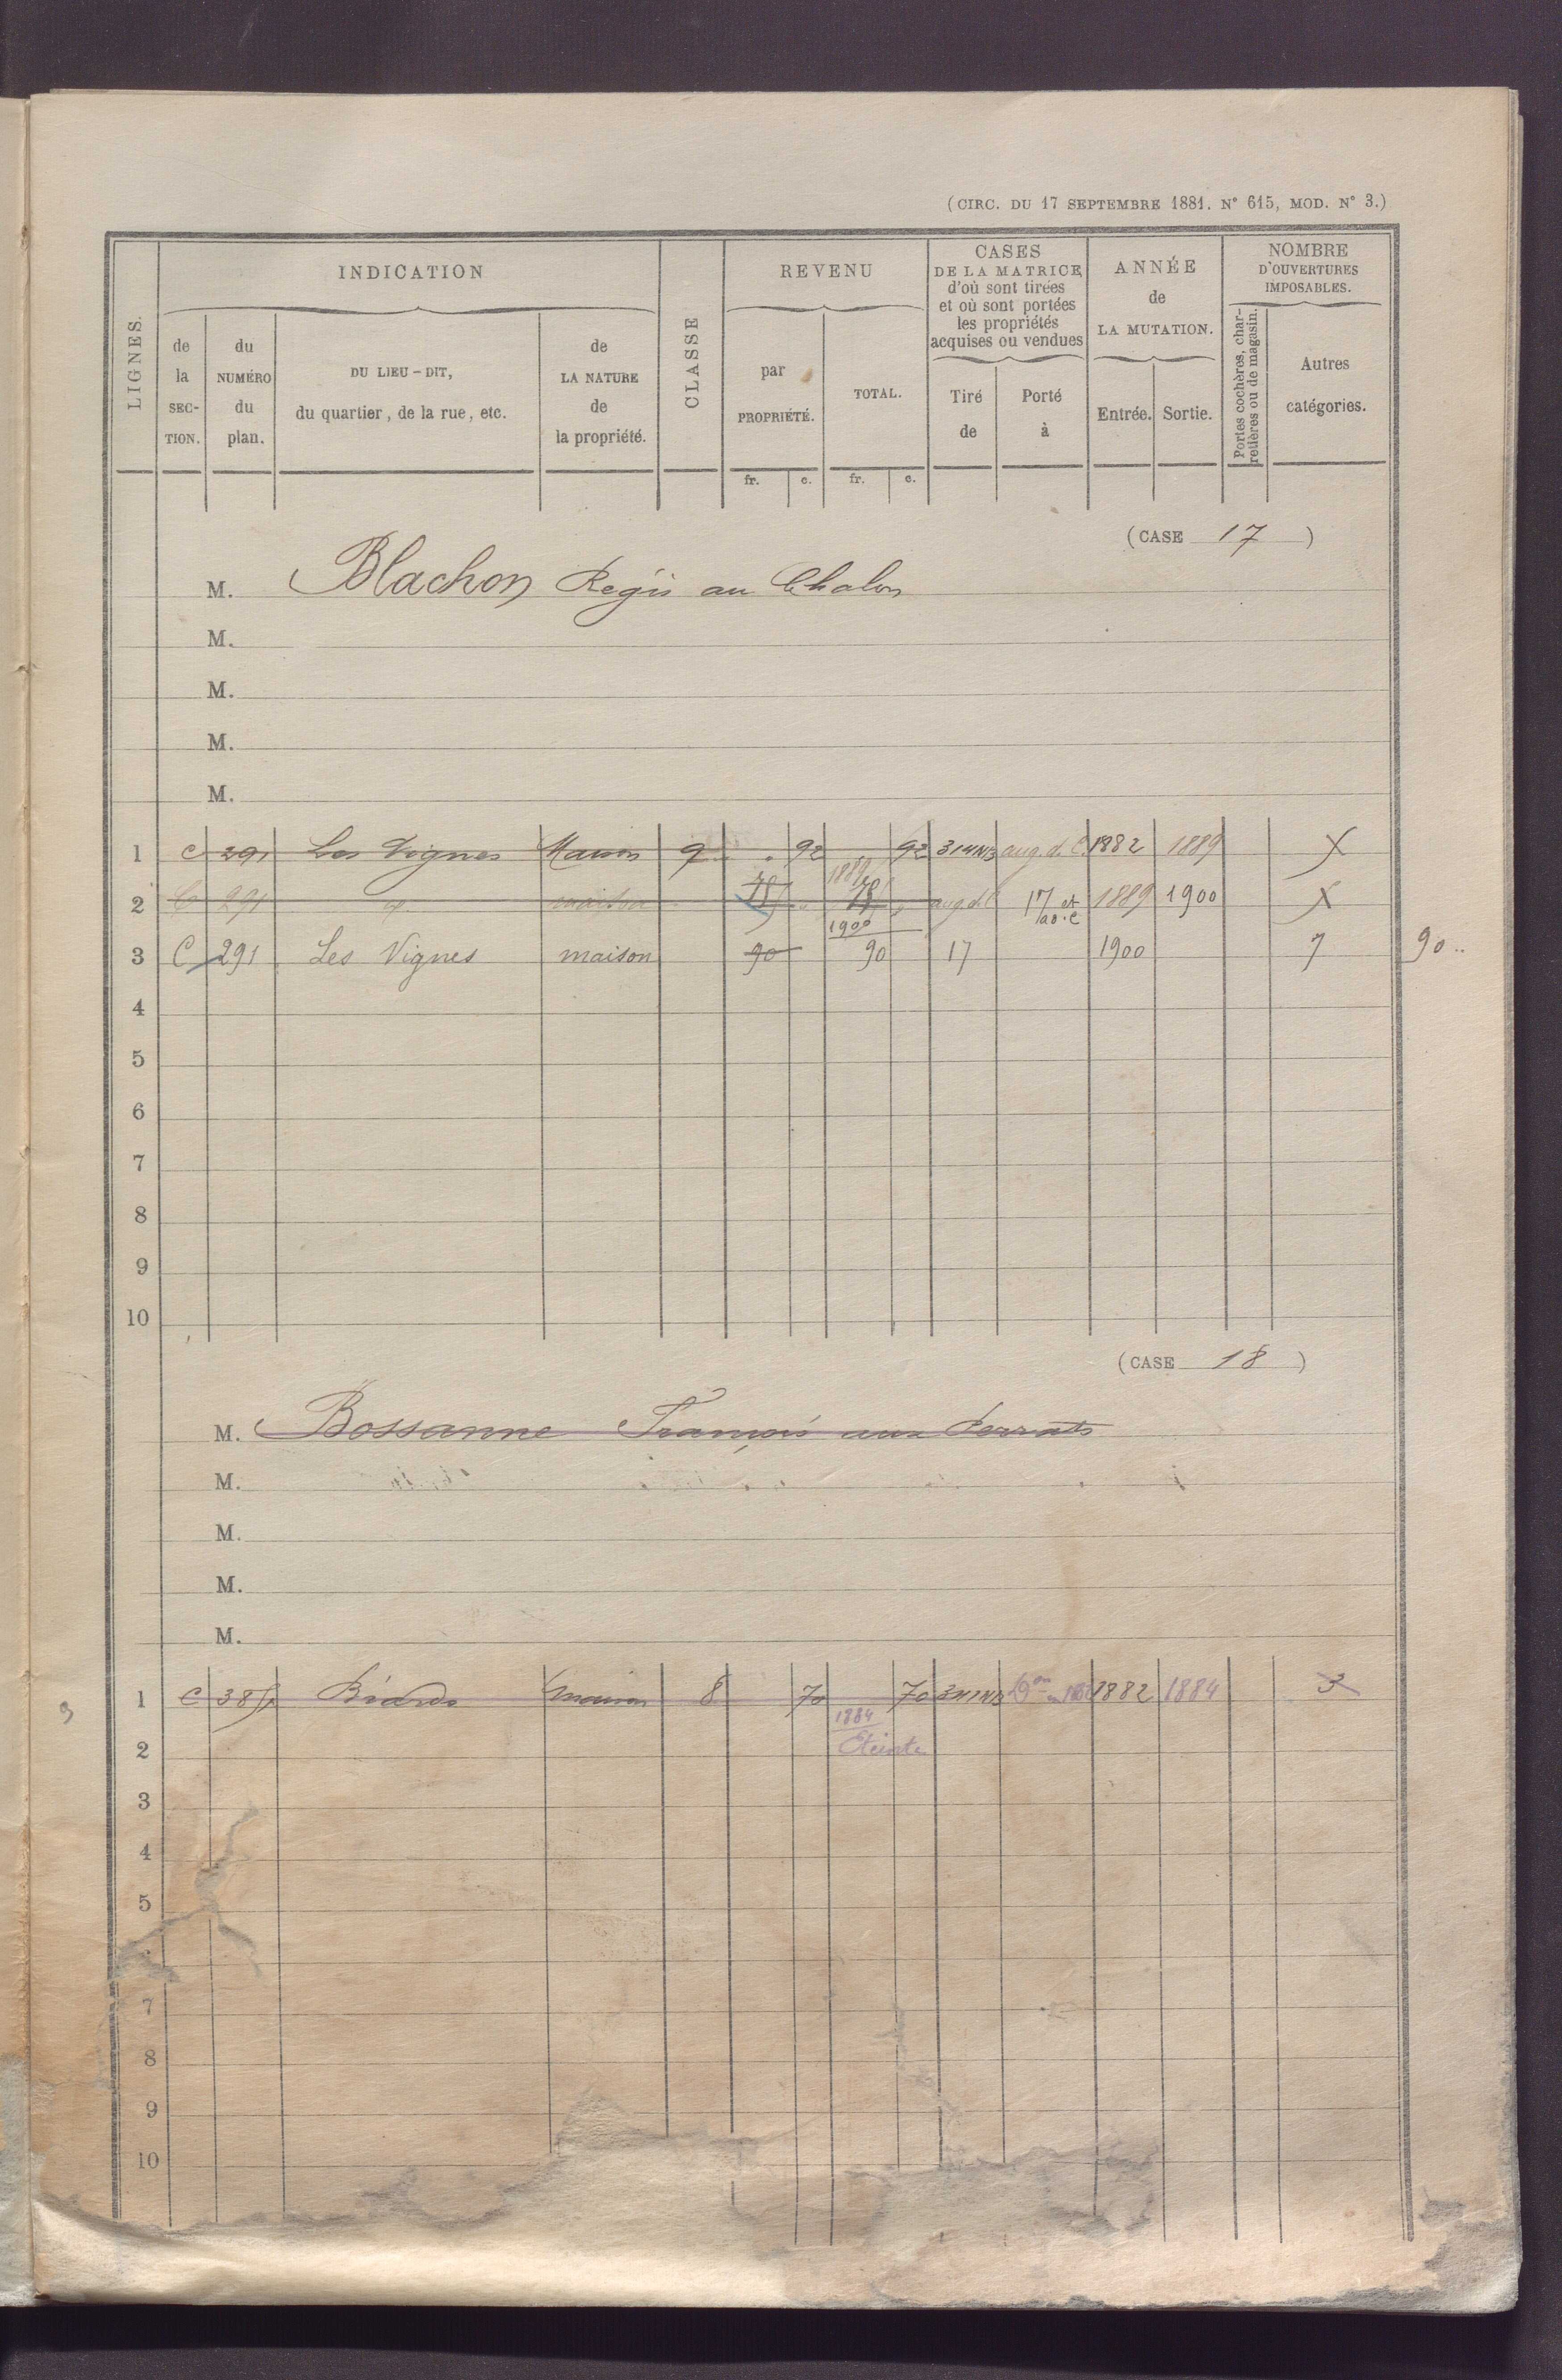 (CIRC. DU 17 SEPTEMBRE 1881. N° 615, MOD. N° 3.)
LIGNES.
INDICATION
de la SECTION.
du NUMÉRO du plan.
DU LIEU-DIT, du quartier, de la rue, etc.
de LA NATURE de la propriété.
CLASSE
REVENU
par PROPRIÉTÉ.
TOTAL.
fr. c. fr. c.
CASES DE LA MATRICE d'où sont tirées et où sont portées les propriétés acquises ou vendues
Tiré de
Porté à
ANNÉE de LA MUTATION.
Entrée. Sortie.
NOMBRE D'OUVERTURES IMPOSABLES.
Portes cochères, charretières ou de magasin.
Autres catégories.
(CASE 17)
M. Blachon Régis au Chalon
M.
M.
M.
M.
1 C 291 Les Vignes Maison 9 . 92 . 92 aug. de C 1882 1889 X
1889
2 C 291 maison 78 78 aug. de C 17 et 1889 1900 X
1900
3 C 291 Les Vignes maison 90 90 17 1900 7 90
4
5
6
7
8
9
10
(CASE 18)
M. Bossanne François aux
M.
M.
M.
M.
1 C maison 8 70 70 1882 1884 3
1884
2 Éteinte
3
4
5
7
8
9
10